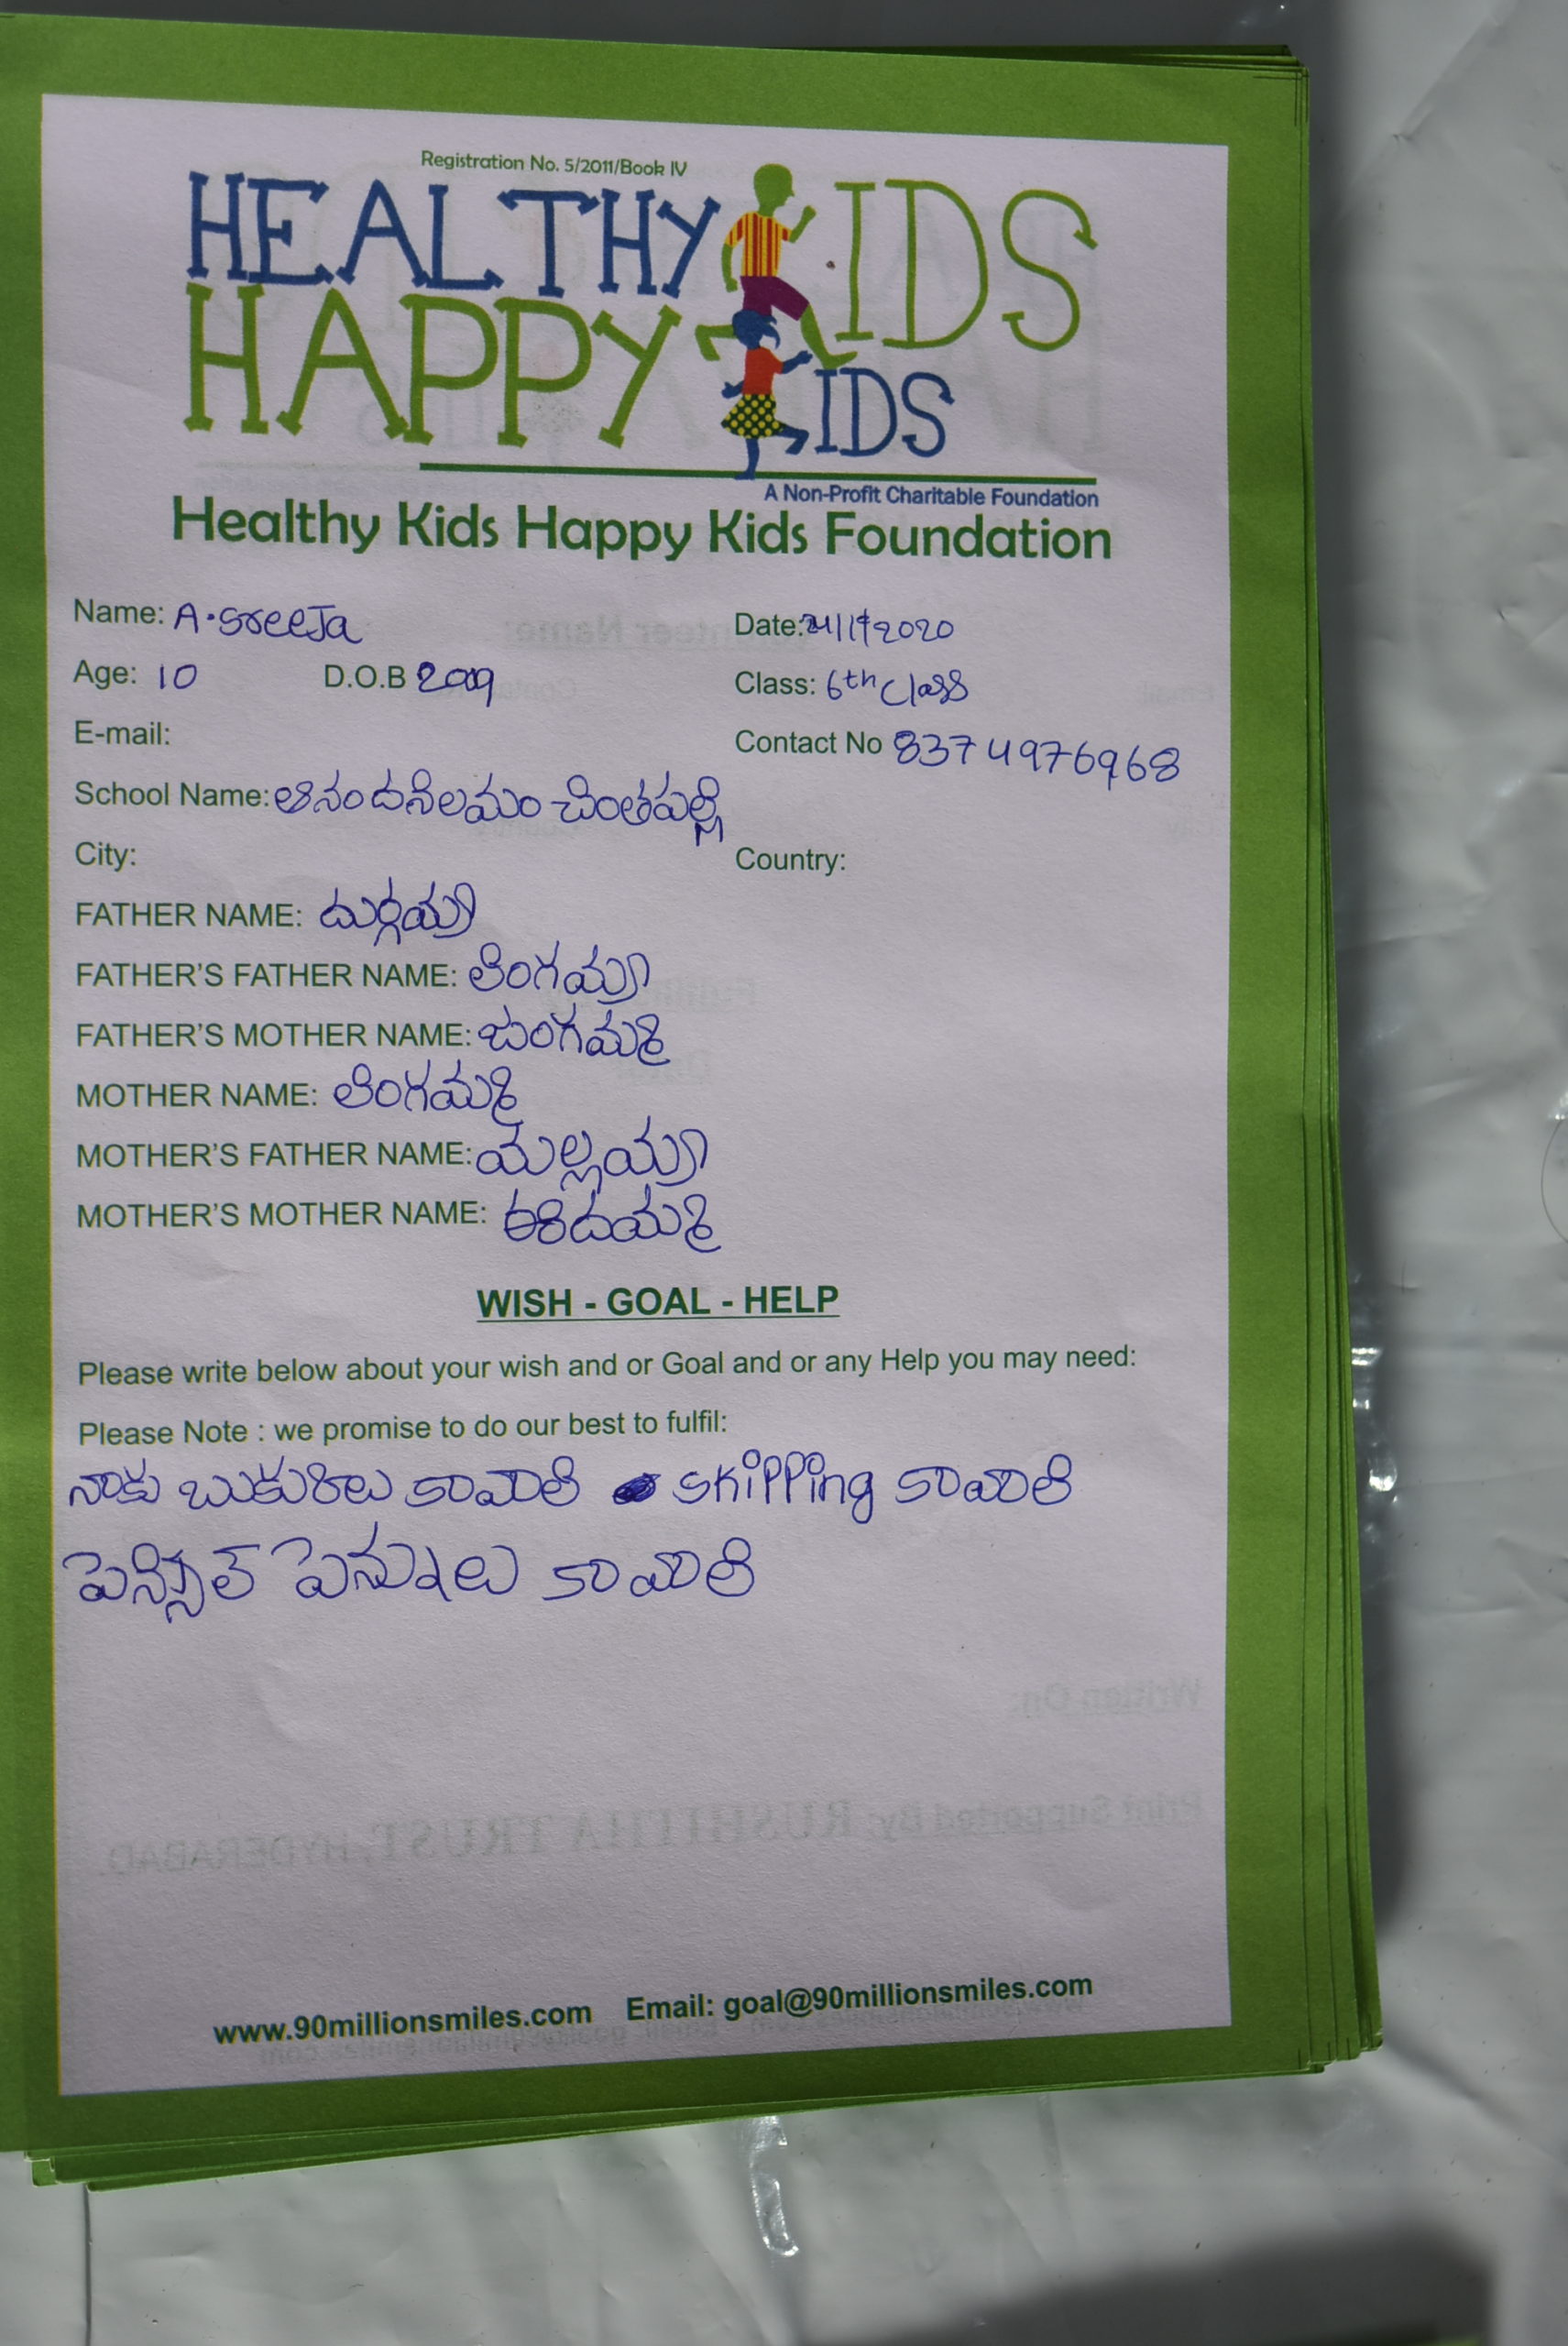 Registration No. 5/2011/Book IV
HEALTHY KIDS
HAPPY KIDS
A Non-Profit Charitable Foundation
Healthy Kids Happy Kids Foundation
Name: A. SreeJa Date: 
Age: 10 D.O.B 2009 Class: 6th Class
E-mail: Contact No 8374976968
School Name: ఆనందనిలయం చింతపల్లి
City: Country:
FATHER NAME: దుర్గయ్య
FATHER'S FATHER NAME: లింగయ్య
FATHER'S MOTHER NAME: జంగమ్మ
MOTHER NAME: లింగమ్మ
MOTHER'S FATHER NAME: మల్లయ్య
MOTHER'S MOTHER NAME:
WISH - GOAL - HELP
Please write below about your wish and or Goal and or any Help you may need:
Please Note : we promise to do our best to fulfil:
నాకు కావాలి skipping కావాలి
పెన్సిల్ పెన్నులు కావాలి
www.90millionsmiles.com Email: goal@90millionsmiles.com